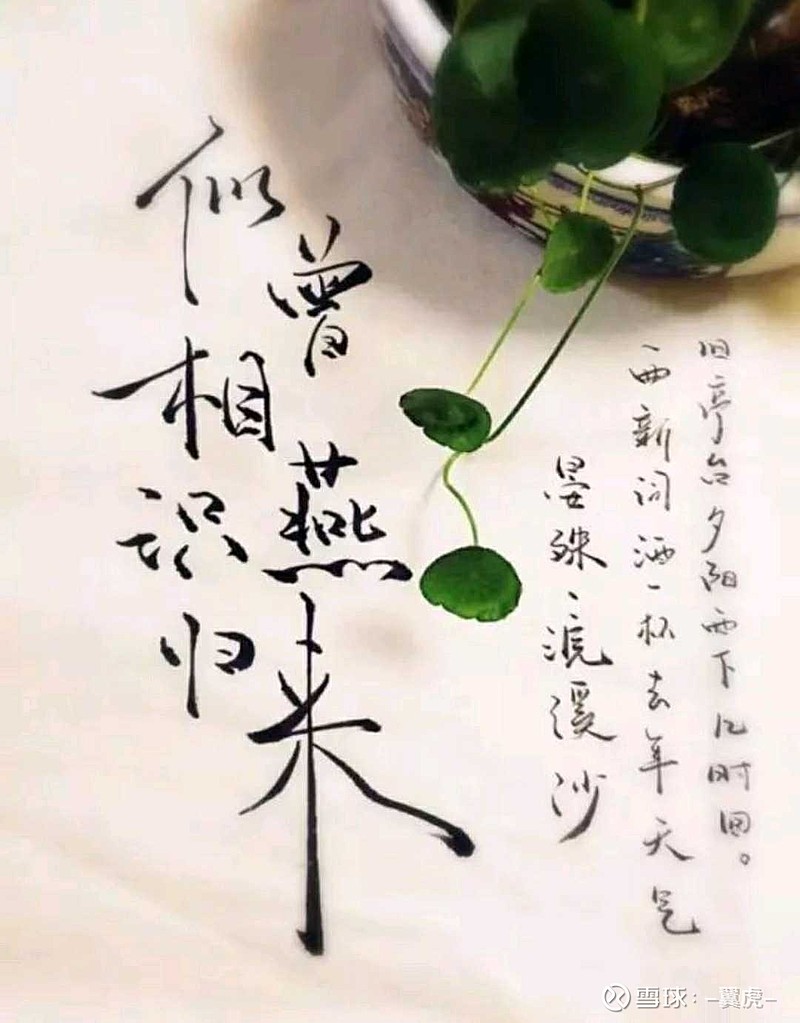 似曾相识燕归来
一曲新词酒一杯去年天气
旧亭台夕阳西下几时回。
晏殊、浣溪沙
雪球：-翼虎-